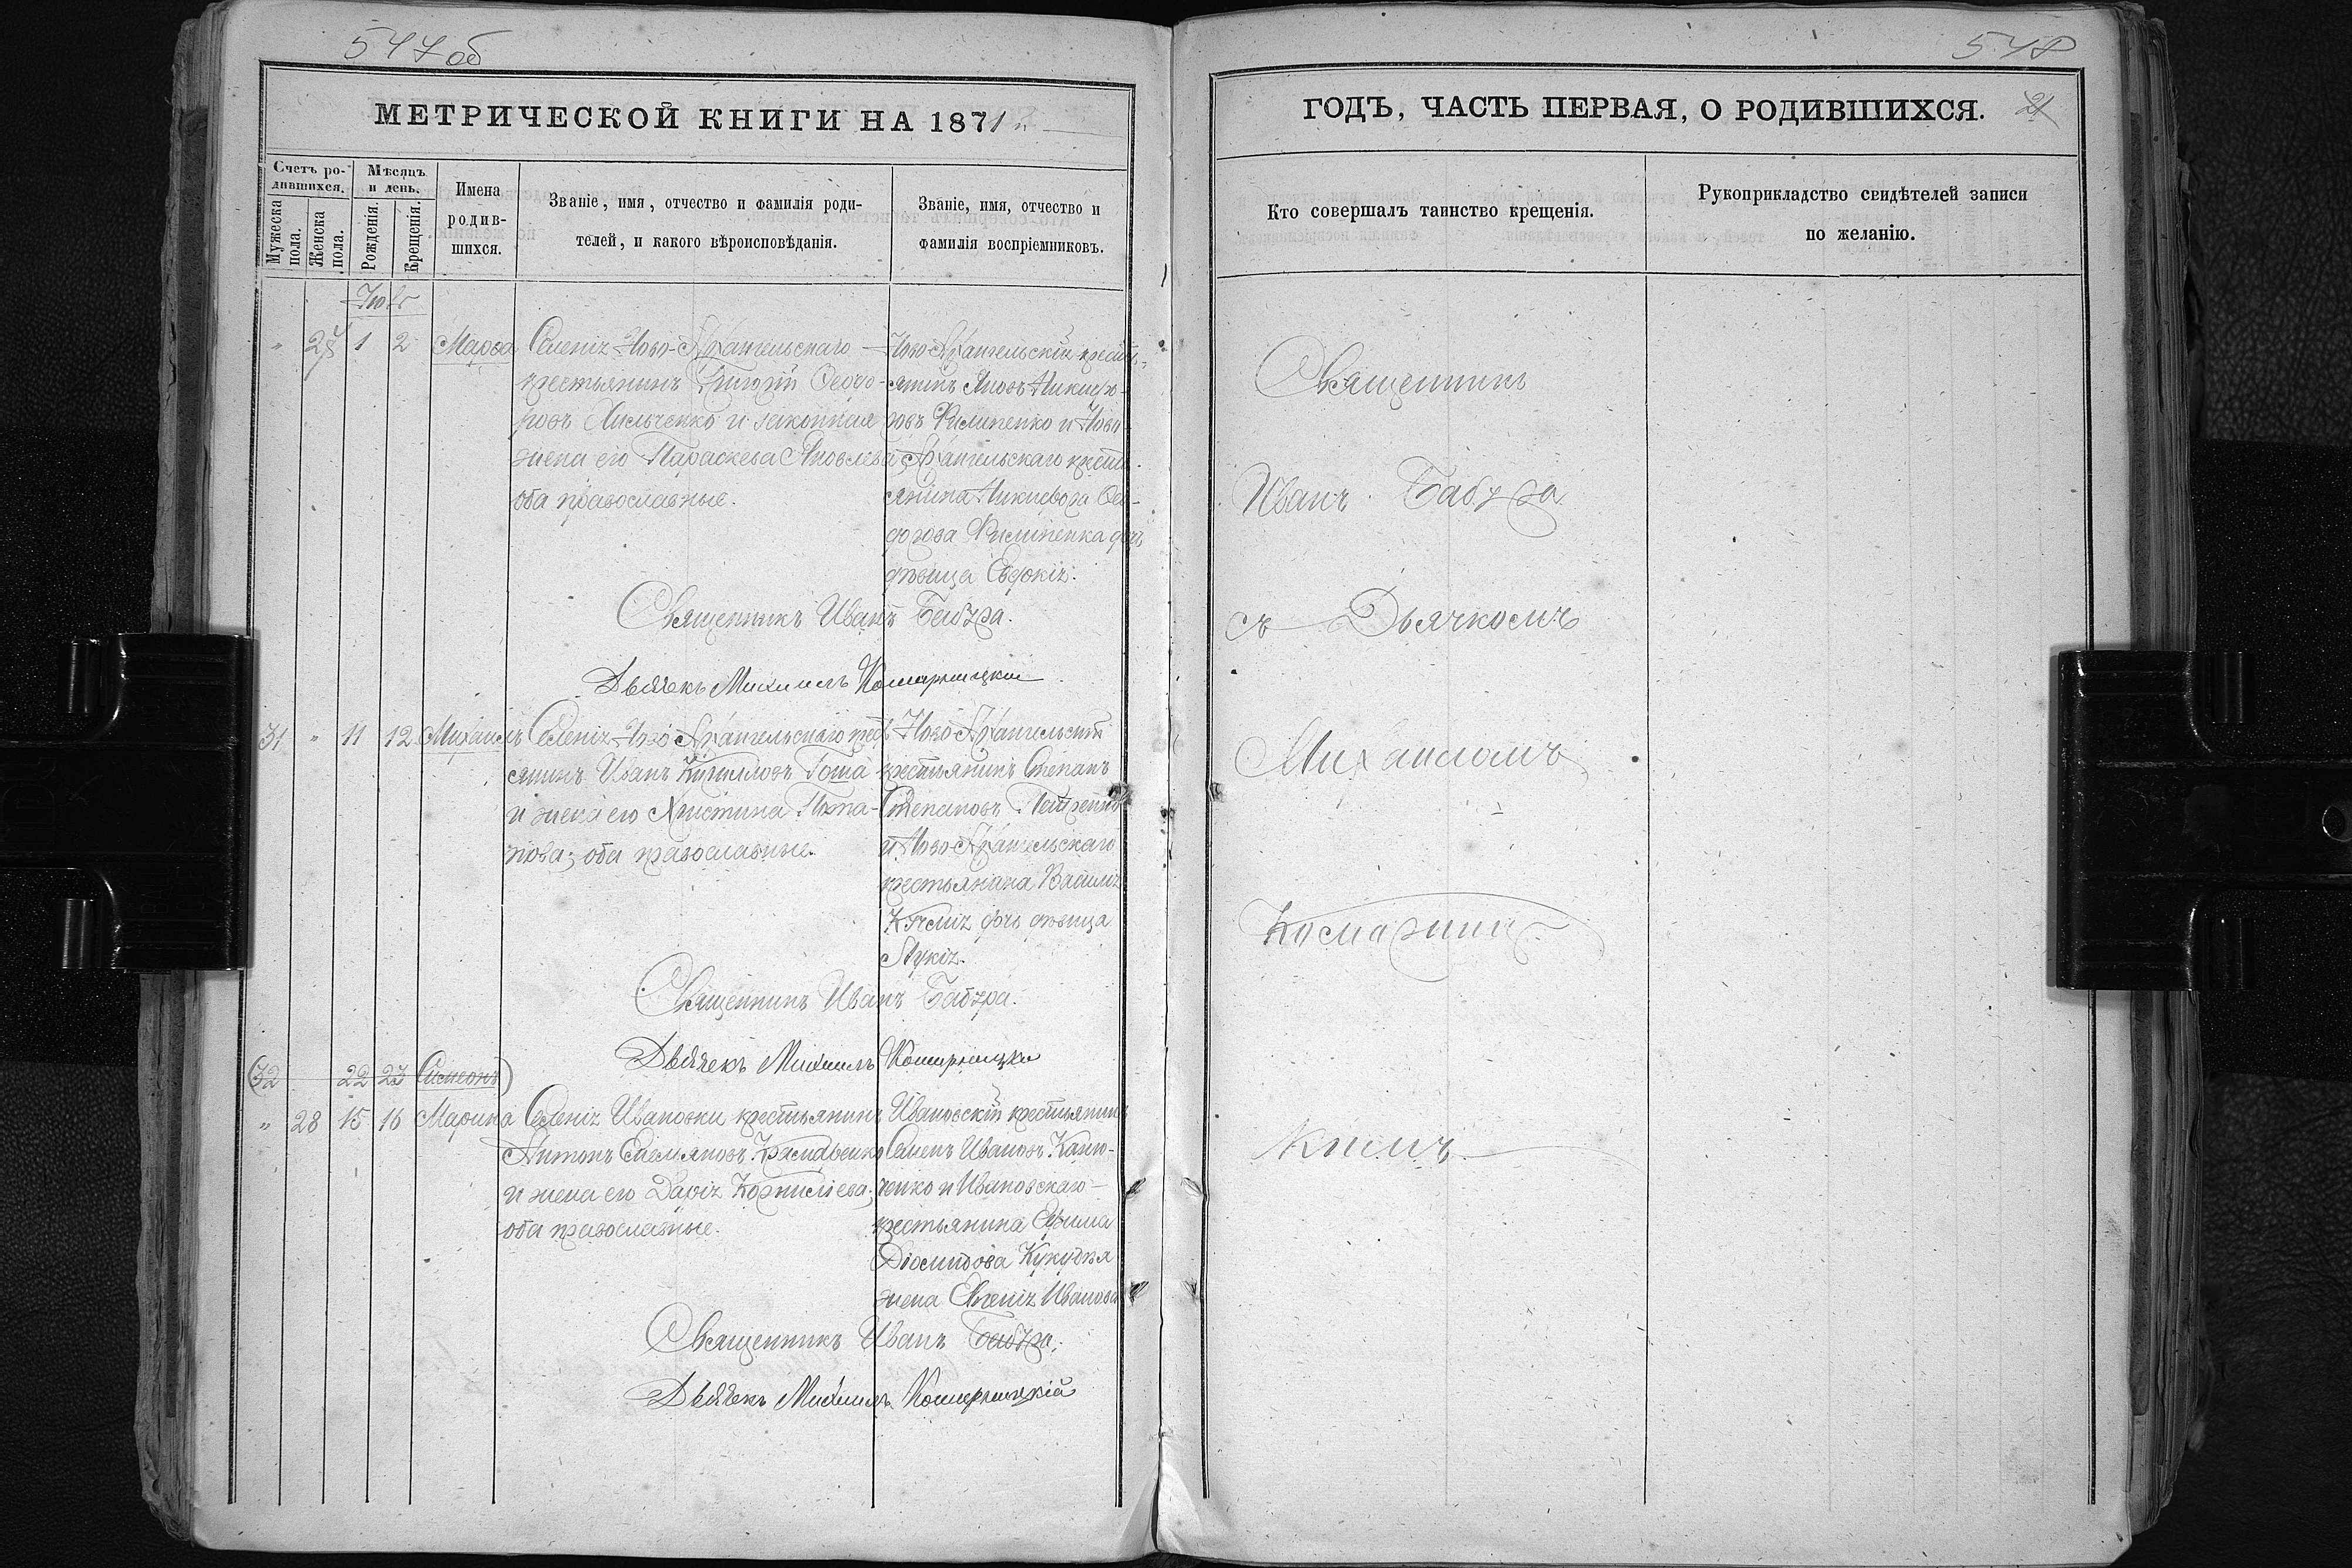 547 об
МЕТРИЧЕСКОЙ КНИГИ НА 1871
Счетъ ро-
дившихся.
Мужеска
пола.
Женска
пола.
Мѣсяцъ
и день.
Рожденія.
Крещенія.
Имена
родив-
шихся.
Званіе, имя, отчество и фамилія роди-
телей, и какого вѣроисповѣданія.
Званіе, имя, отчество и
фамилія воспріемниковъ.
27 1 2
Селенія Ново-Архангельскаго
крестьянинъ Григорій Ѳеодо-
ровъ Хильченко и законная
жена его Параскева Яковлева
оба православные.
Ново-Архангельскій кресть-
янинъ Яковъ Никифо-
ровъ Филипенко и Ново
Архангельскаго кресть-
янина Никифора Ѳео-
дорова Филипенка дочь
дѣвица Евдокія.
Священникъ Иванъ Бабура.
Дьячекъ Михаилъ
31 " 11 12 Михаилъ
Селенія Ново Архангельскаго крест
янинъ Иванъ Кирилловъ Гоша
и жена его Христина
оба православные.
Ново Архангельскій
крестьянинъ Степанъ
Степановъ Петренко
и Ново Архангельскаго
крестьянина Василія
дочь дѣвица
Лукія.
Священникъ Иванъ Бабура.
Дьячекъ Михаилъ
(32 22 23 Симеонъ)
" 28 15 16 Марина
Селенія Ивановки крестьянинъ
Антонъ Емеліановъ
и жена его Дарія Корниліева;
оба православные.
Ивановскій крестьянинъ
Семенъ Ивановъ Каню-
ченко и Ивановскаго
крестьянина Ефима
Діомидова
жена Евгенія Иванова
Священникъ Иванъ Бабура.
Дьячекъ Михаилъ
548
ГОДЪ, ЧАСТЬ ПЕРВАЯ, О РОДИВШИХСЯ. 21
Кто совершалъ таинство крещенія.
Рукоприкладство свидѣтелей записи
по желанію.
Священникъ
Иванъ Бабура
съ Дьячкомъ
Михаиломъ